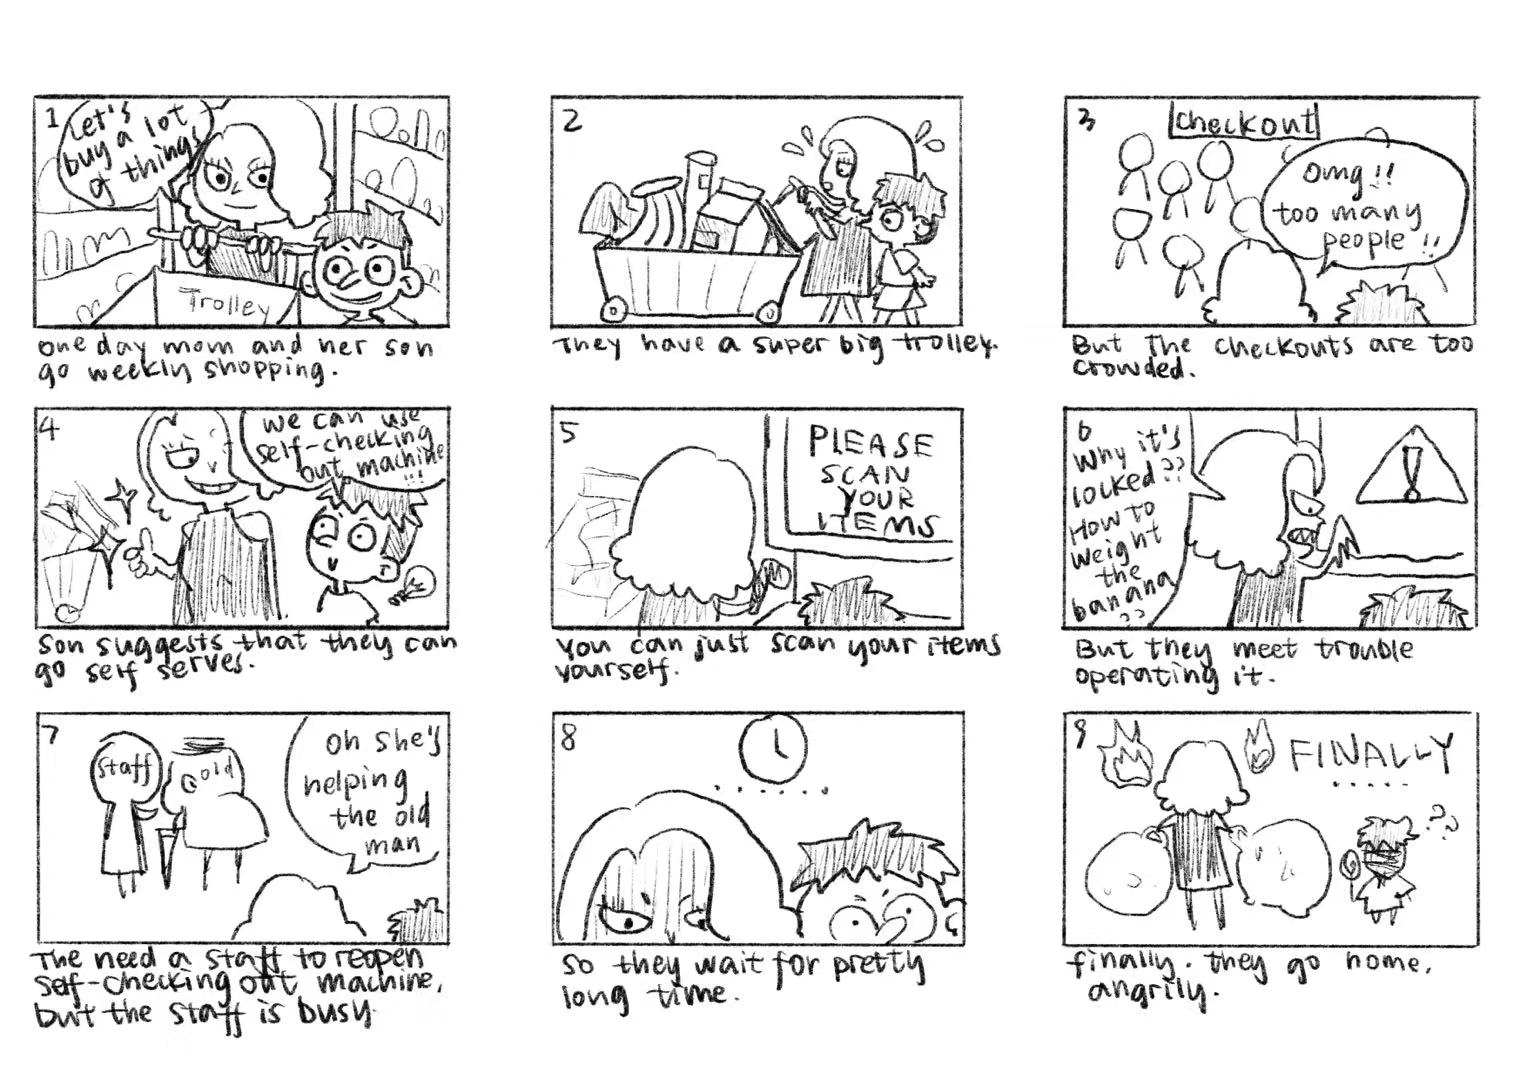 1
Let's
buy a lot
of things
Trolley
one day mom and her son
go weekly shopping.
2
They have a super big trolley.
3
checkout
omg!!
too many
people!!
But the checkouts are too
crowded.
4
we can use
self-checking
out machine
!!!
Son suggests that they can
go self serves.
5
PLEASE
SCAN
YOUR
ITEMS
You can just scan your items
yourself.
6
Why it's
locked??
How to
weight
the
banana
??
!
But they meet trouble
operating it.
7
staff
old
oh she's
helping
the old
man
The need a staff to reopen
self-checking out machine,
but the staff is busy.
8
......
So they wait for pretty
long time.
9
FINALLY
.....
??
finally. they go home,
angrily.